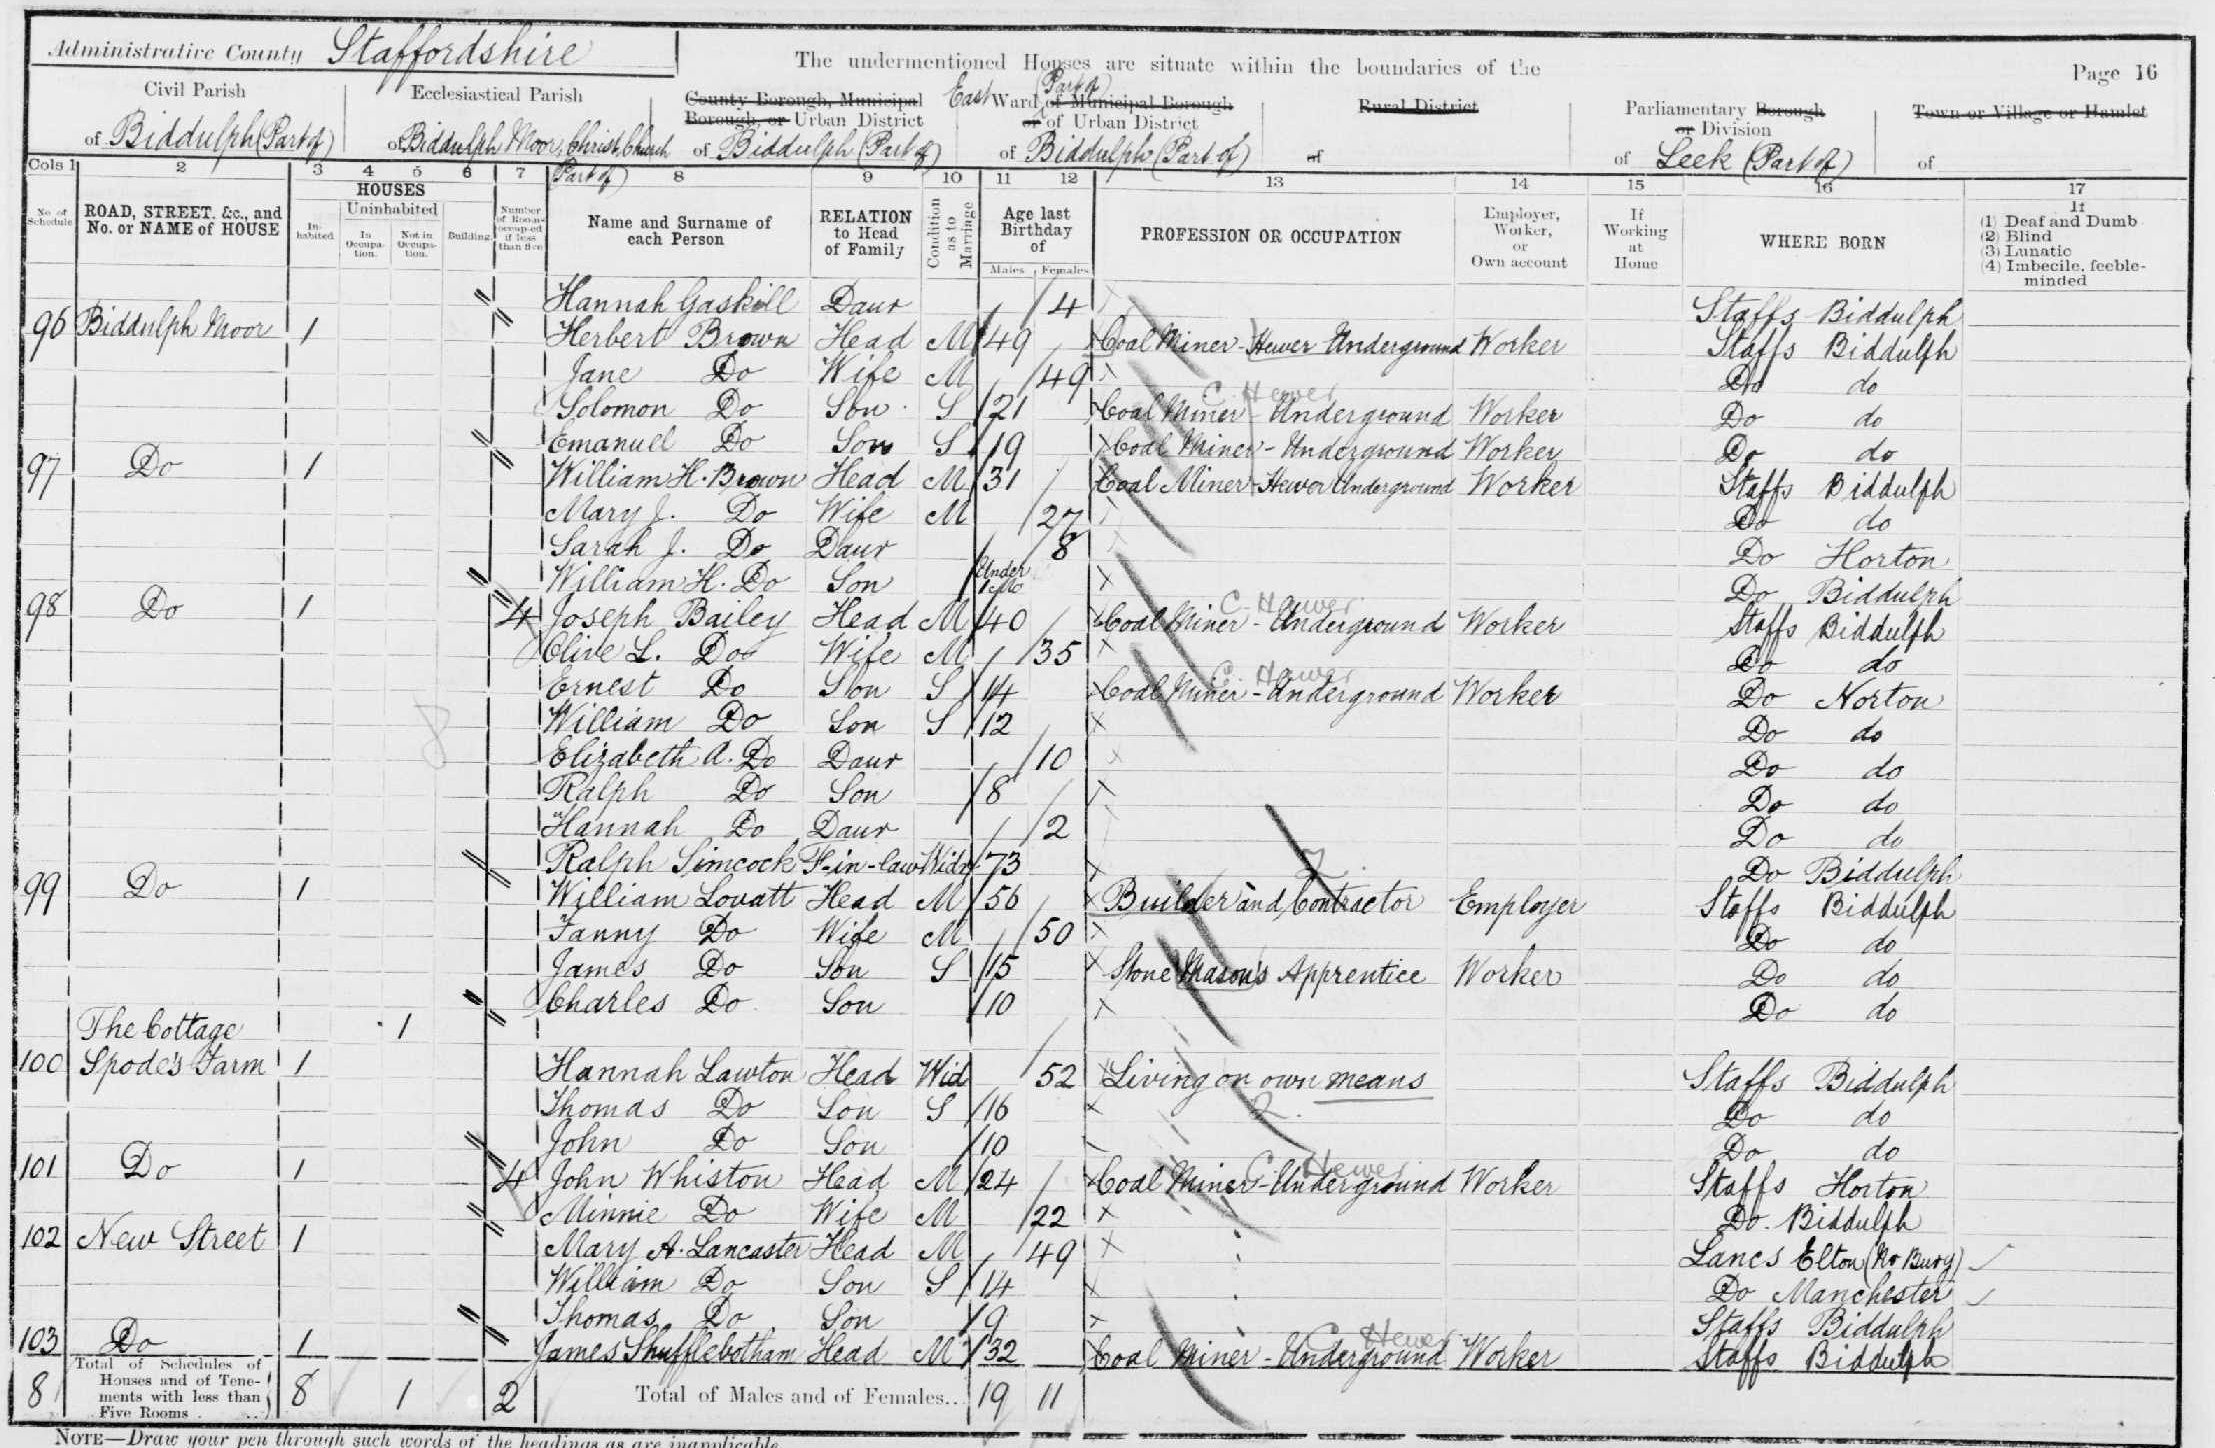 Administrative County Staffordshire
The undermentioned Houses are situate within the boundaries of the
Page 16
Civil Parish
of Biddulph (Part of)
Ecclesiastical Parish
of Biddulph Moor, Christ Church (Part of)
County Borough, Municipal Borough, or Urban District
of Biddulph (Part of)
East Ward (Part of) of Municipal Borough or of Urban District
of Biddulph (Part of)
Rural District
of
Parliamentary Borough or Division
of Leek (Part of)
Town or Village or Hamlet
of
Cols 1 2 3 4 5 6 7 8 9 10 11 12 13 14 15 16 17
No. of Schedule
ROAD, STREET, &c., and No. or NAME of HOUSE
HOUSES
Inhabited
Uninhabited
In Occupation.
Not in Occupation.
Building
Number of Rooms occupied if less than five
Name and Surname of each Person
RELATION to Head of Family
Condition as to Marriage
Age last Birthday of
Males Females
PROFESSION OR OCCUPATION
Employer, Worker, or Own account
If Working at Home
WHERE BORN
If
(1) Deaf and Dumb
(2) Blind
(3) Lunatic
(4) Imbecile, feeble-minded
Hannah Gaskill Daur 4 Staffs Biddulph
96 Biddulph Moor 1 Herbert Brown Head M 49 Coal Miner - Hewer Underground Worker Staffs Biddulph
Jane Do Wife M 49 Do do
Solomon Do Son S 21 C. Hewer Coal Miner - Underground Worker Do do
Emanuel Do Son S 19 Coal Miner - Underground Worker Do do
97 Do 1 William H. Brown Head M 31 Coal Miner - Hewer Underground Worker Staffs Biddulph
Mary J. Do Wife M 27 Do do
Sarah J. Do Daur 8 Do Horton
William H. Do Son Under Do Biddulph
98 Do 1 4 Joseph Bailey Head M 40 C. Hewer Coal Miner - Underground Worker Staffs Biddulph
Clive L. Do Wife M 35 Do do
Ernest Do Son S 14 C. Hewer Coal Miner - Underground Worker Do Norton
William Do Son S 12 Do do
Elizabeth A. Do Daur 10 Do do
Ralph Do Son 8 Do do
Hannah Do Daur 2 Do do
Ralph Simcock F-in-law Widr 73 Do Biddulph
99 Do 1 William Lovatt Head M 56 Builder and Contractor Employer Staffs Biddulph
Fanny Do Wife M 50 Do do
James Do Son S 15 Stone Mason's Apprentice Worker Do do
Charles Do Son 10 Do do
The Cottage 1
100 Spode's Farm 1 Hannah Lawton Head Wid 52 Living on own means Staffs Biddulph
Thomas Do Son S 16 2. Do do
John Do Son 10 Do do
101 Do 1 4 John Whiston Head M 24 C. Hewer Coal Miner - Underground Worker Staffs Horton
Minnie Do Wife M 22 Do. Biddulph
102 New Street 1 Mary A. Lancaster Head M 49 Lancs Elton (Nr Bury)
William Do Son S 14 Do Manchester
Thomas Do Son 9 Staffs Biddulph
103 Do 1 James Shufflebotham Head M 32 C Hewer Coal Miner - Underground Worker Staffs Biddulph
8 Total of Schedules of Houses and of Tenements with less than Five Rooms 8 1 2 Total of Males and of Females... 19 11
NOTE—Draw your pen through such words of the headings as are inapplicable